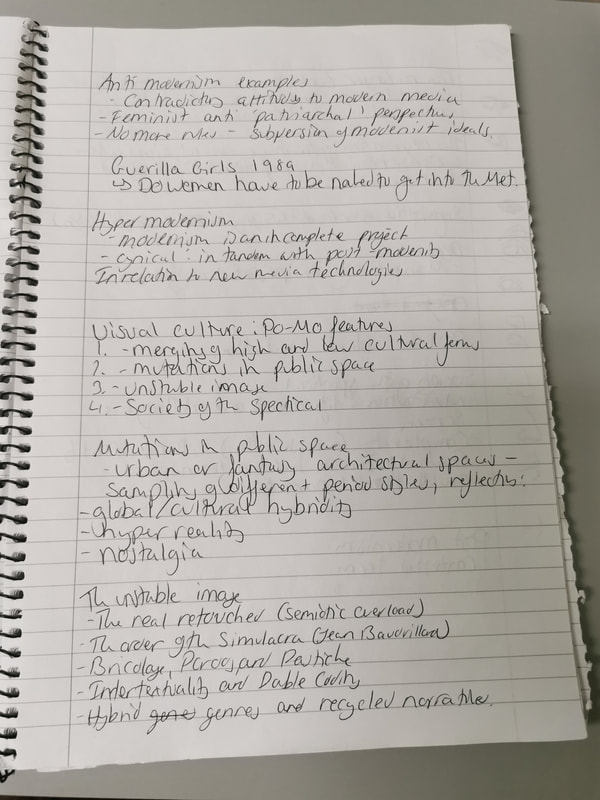 Anti modernism examples
- Contradictory attitudes to modern media
- Feminist anti 'patriarchal' perspectives
- No more rules - subversion of modernist ideals.
Guerilla Girls 1989
↳ Do women have to be naked to get into the Met.
Hyper modernism
- modernism is an incomplete project
- cynical : in tandem with post-modernity
In relation to new media technologies
Visual culture : Po-Mo features
1. - merging of high and low cultural forms
2. - mutations in public space
3. - unstable image
4. - Society of the Spectical
Mutations in public space
- urban or fantasy architectural spaces -
sampling of different period styles, reflective:
- global/cultural hybridity
- hyper reality
- nostalgia
The unstable image
- The real retouched (Semiotic overload)
- The order of the Simulacra (Jean Bauorillard)
- Bricolage, Parody and Pastiche
- Intertextuality and Double Coding
- Hybrid genres and recycled narrative.